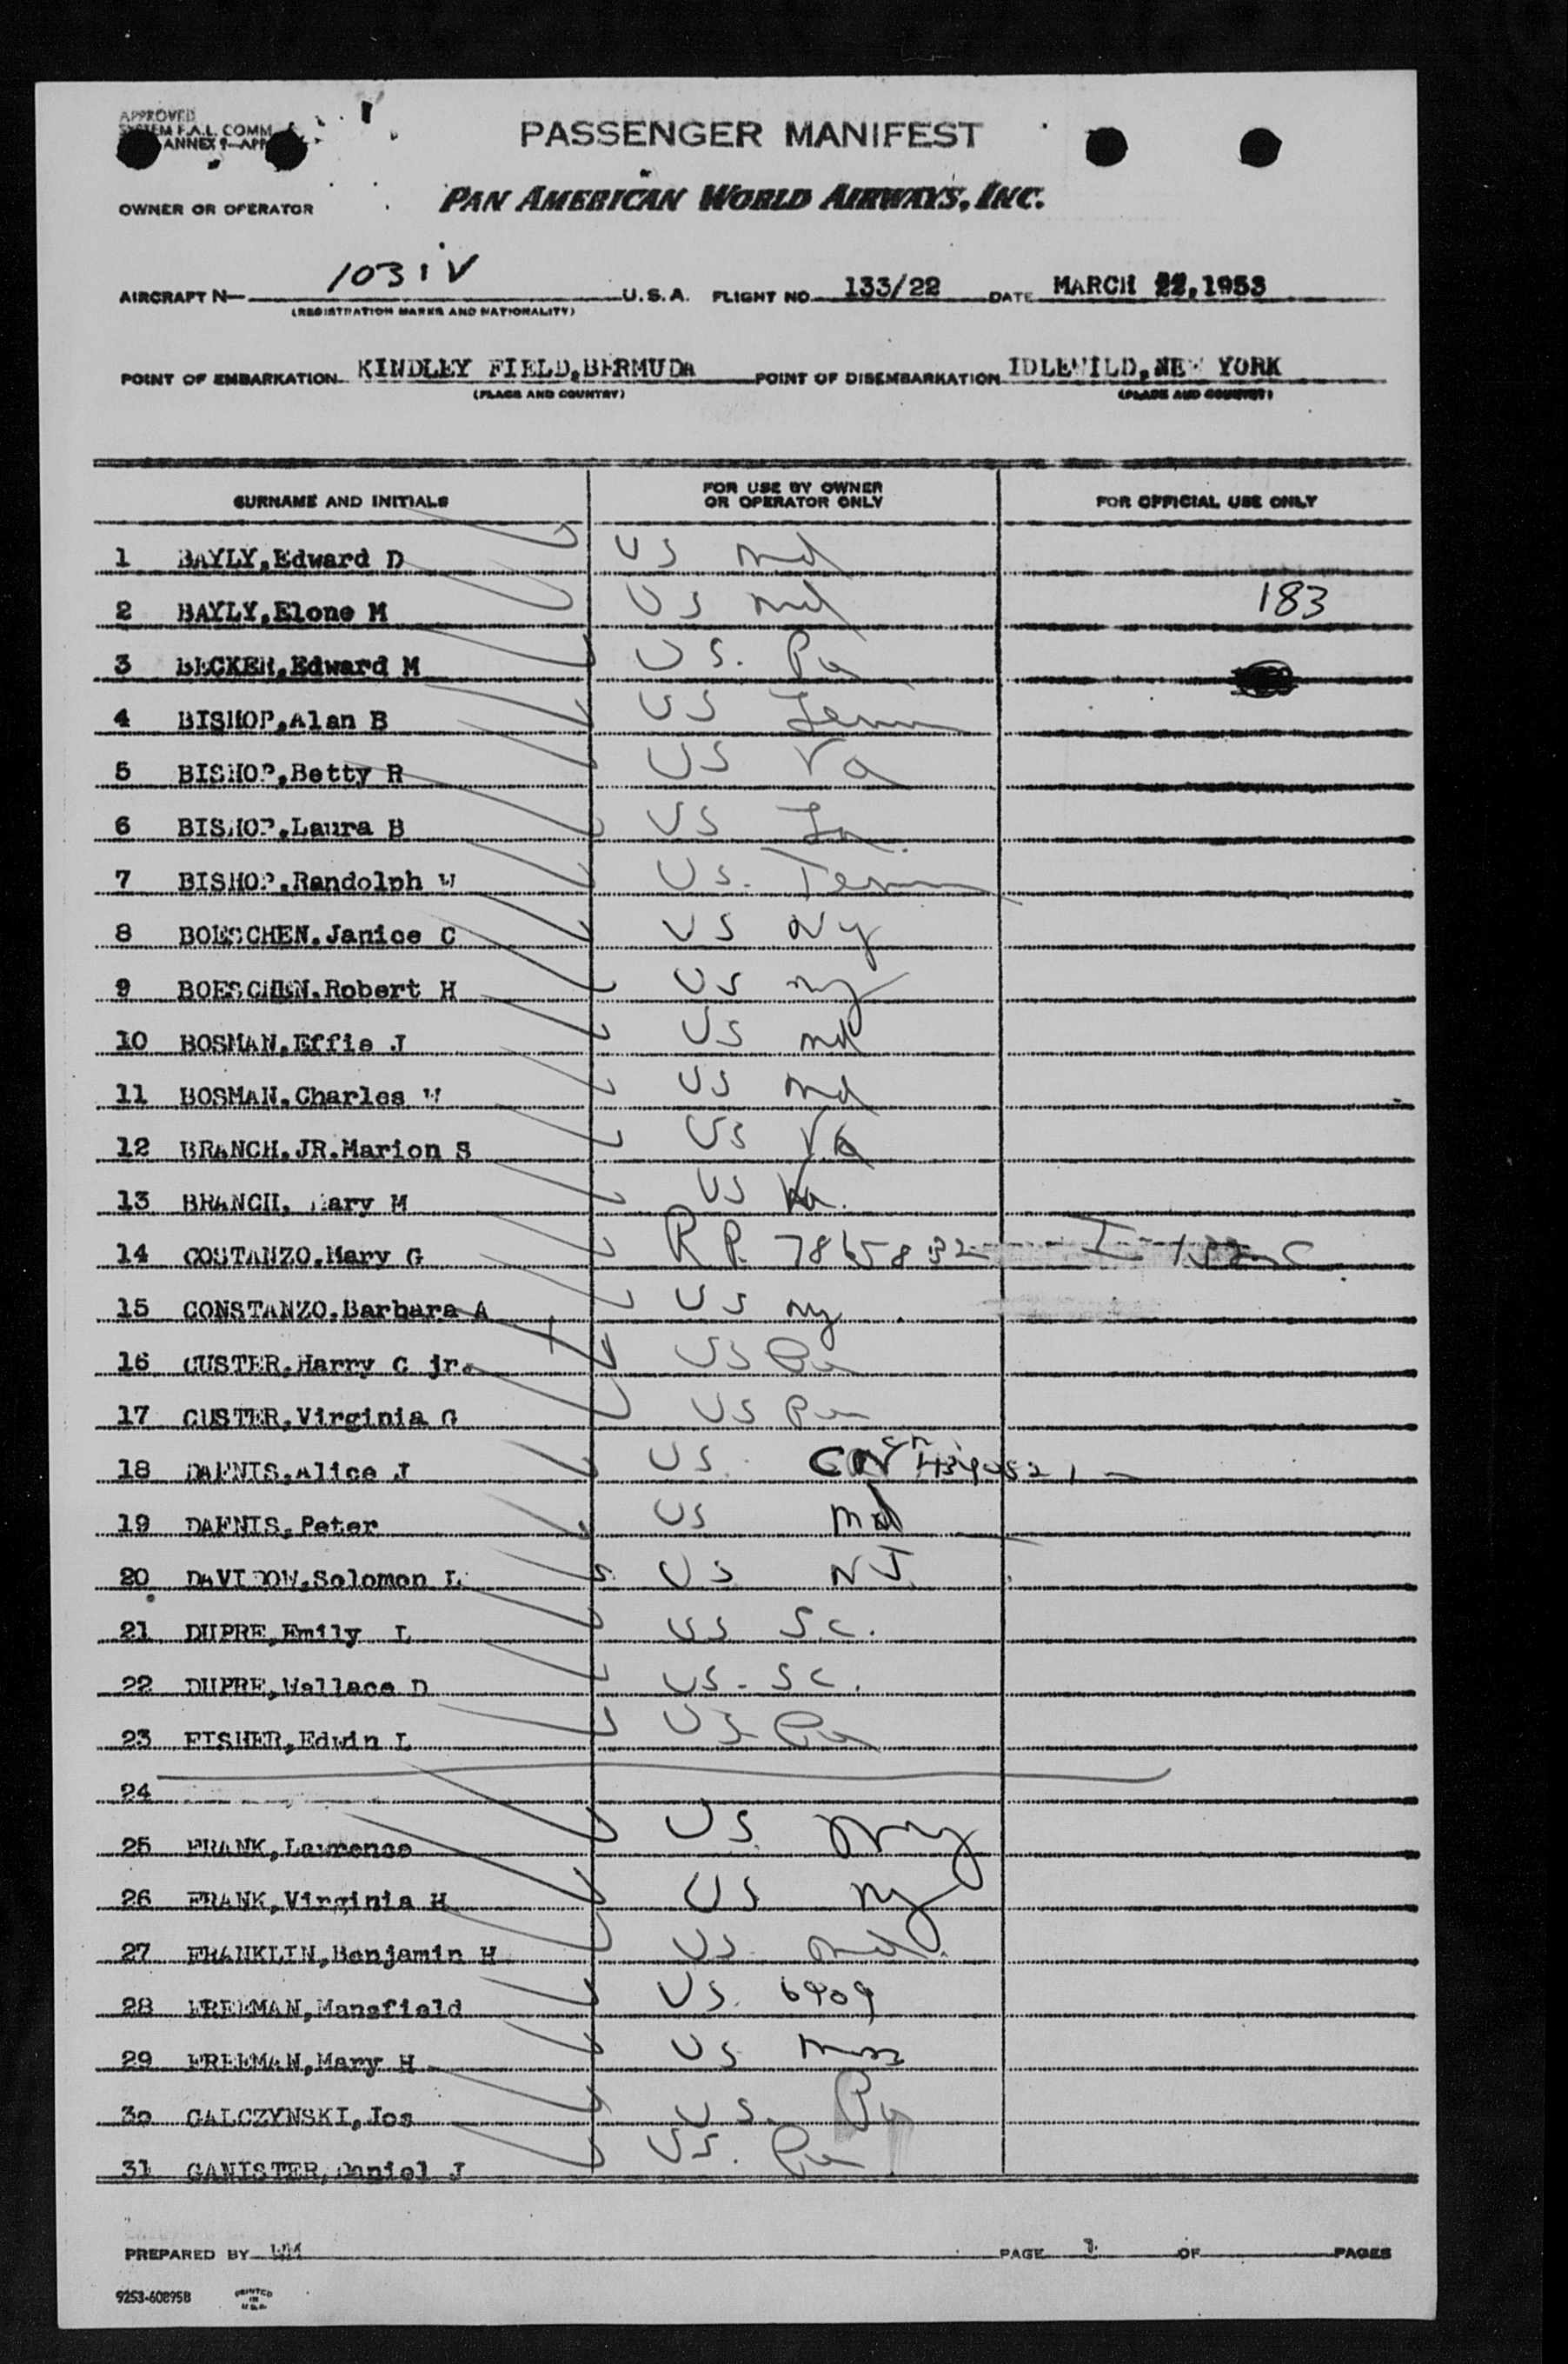 APPROVED
SYSTEM F.A.L. COMM
ANNEX 9—APP
PASSENGER MANIFEST
OWNER OR OPERATOR PAN AMERICAN WORLD AIRWAYS, INC.
AIRCRAFT N— 1031V U.S.A. FLIGHT NO. 133/22 DATE MARCH 22,1953
(REGISTRATION MARKS AND NATIONALITY)
POINT OF EMBARKATION KINDLEY FIELD,BERMUDA POINT OF DISEMBARKATION IDLEWILD,NEW YORK
(PLACE AND COUNTRY) (PLACE AND COUNTRY)
SURNAME AND INITIALS FOR USE BY OWNER OR OPERATOR ONLY FOR OFFICIAL USE ONLY
1 BAYLY,Edward D US Md
2 BAYLY,Elone M US Md 183
3 BECKER,Edward M US. Pa
4 BISHOP,Alan B US Tenn
5 BISHOP,Betty R US Va
6 BISHOP,Laura B US
7 BISHOP,Randolph W US. Tenn
8 BOESCHEN,Janice C US Ny
9 BOESCHEN,Robert H US ny
10 BOSMAN,Effie J US md
11 BOSMAN,Charles W US md
12 BRANCH,JR.Marion S US Va
13 BRANCH, Mary M US Va.
14 COSTANZO,Mary G R P. 7865832
15 CONSTANZO,Barbara A US ny
16 CUSTER,Harry C jr. US Pa
17 CUSTER,Virginia G US Pa
18 DAFNIS,Alice J US CN
19 DAFNIS,Peter US Md
20 DAVIDOW,Solomon L US NJ
21 DUPRE,Emily L US S.C.
22 DUPRE,Wallace D US. SC.
23 FISHER,Edwin L US Pa
24
25 FRANK,Lawrence US. Ny
26 FRANK,Virginia H US ny
27 FRANKLIN,Benjamin H US. md.
28 FREEMAN,Mansfield US. 6909
29 FREEMAN,Mary H US
30 GALCZYNSKI,Jos US. Pa
31 GANISTER,Daniel J US. Pa
PREPARED BY WM PAGE 1 OF PAGES
9253-60895B PRINTED IN U.S.A.